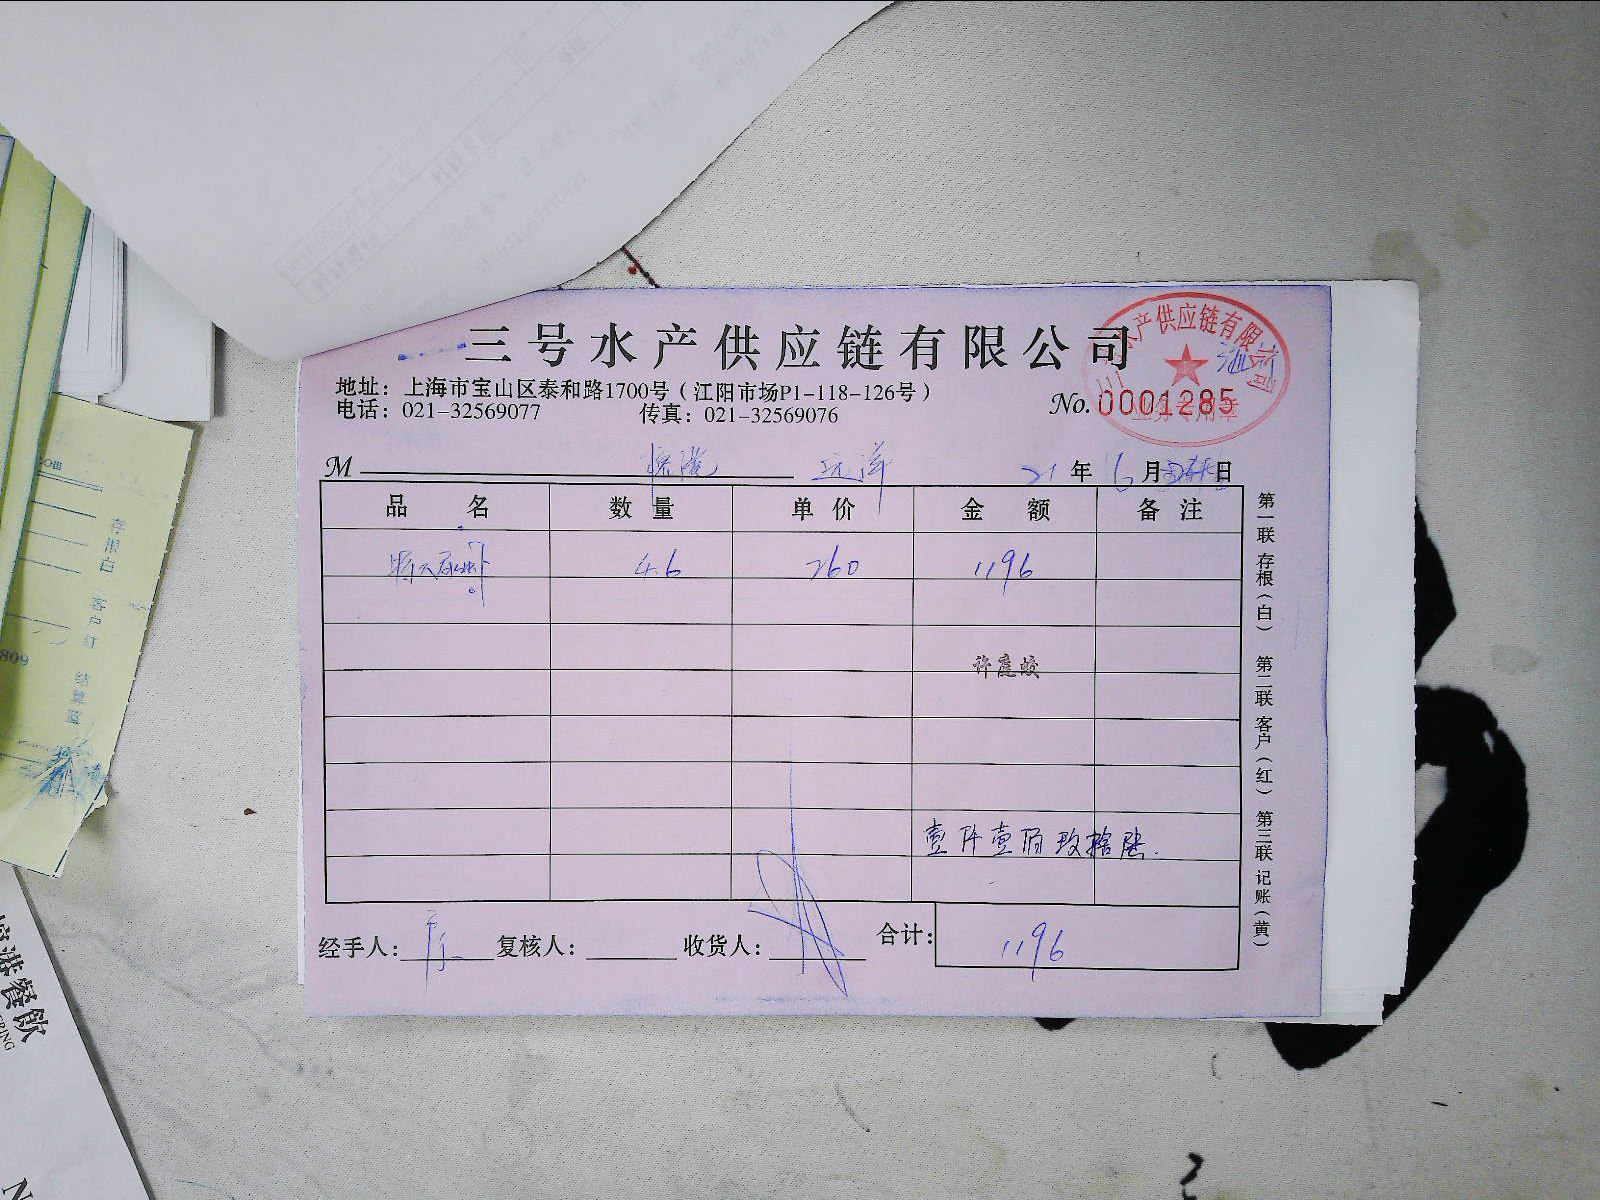 三号水产供应链有限公司
地址：上海市宝山区泰和路1700号（江阳市场P1-118-126号）
电话：021-32569077 传真：021-32569076
No. 0001285
水产供应链有限公司
业务专用章
M 远洋 21年 6月 日
品名 数量 单价 金额 备注
4.6 260 1196
许庭蛟
壹仟壹佰玖拾陆.
经手人： 复核人： 收货人： 合计： 1196
第一联 存根（白） 第二联 客户（红） 第三联 记账（黄）
存根白 客户红 结算蓝
809
港餐飲